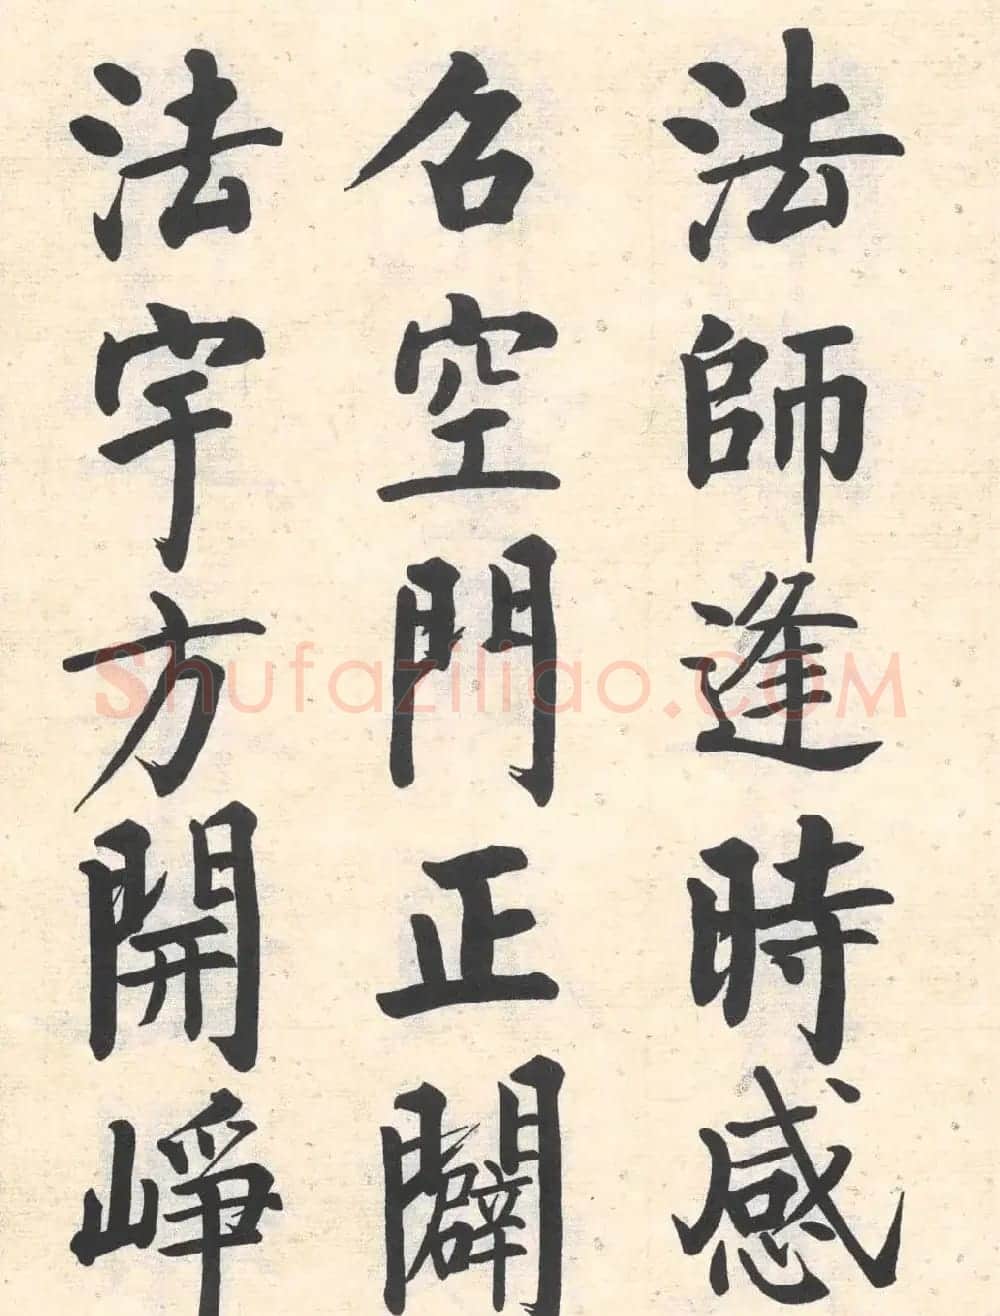 法師逢時感
召空門正闢
法宇方開崢
Shufaziliao.COM